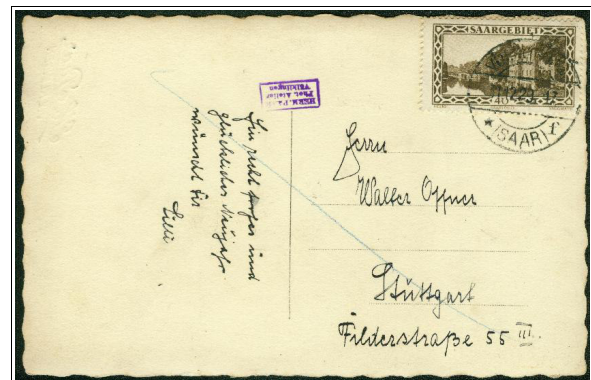 SAARGEBIET
40
(SAAR) f
HERM.
Phot. Atelier
Völklingen
Ein recht frohes und
glückliches Neujahr
wünscht Dir
Lilli
Herrn
Walter Offner
Stuttgart
Filderstraße 55 III.